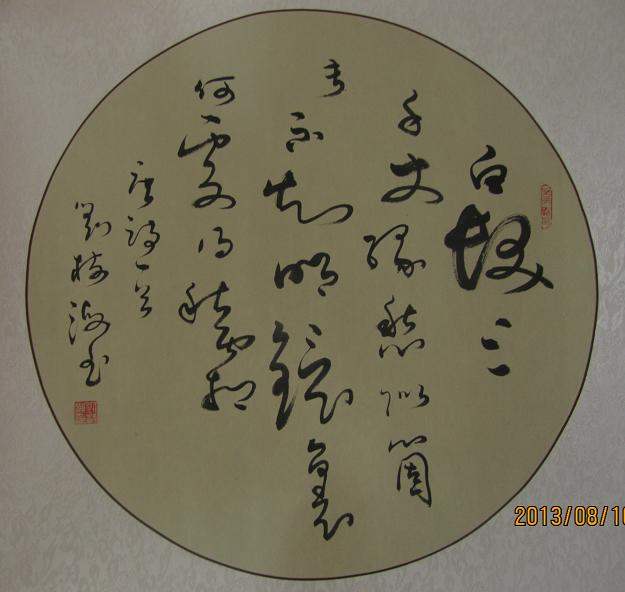 白髮三
千丈緣愁似箇
長不知明鏡裏
何處得秋霜
唐詩一首
劉樹海書
2013/08/10